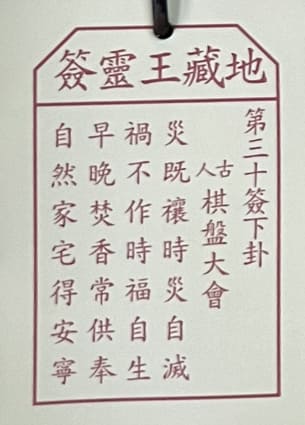 地藏王靈簽
第三十簽下卦
古人 棋盤大會
災既禳時災自滅
禍不作時福自生
早晚焚香常供奉
自然家宅得安寧